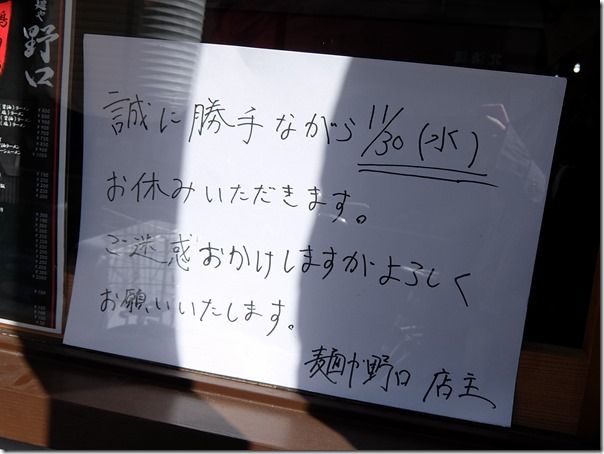 麺や 野口
誠に勝手ながら 11/30(水)
お休みいただきます。
ご迷惑おかけしますがよろしく
お願いいたします。
麺や野口 店主